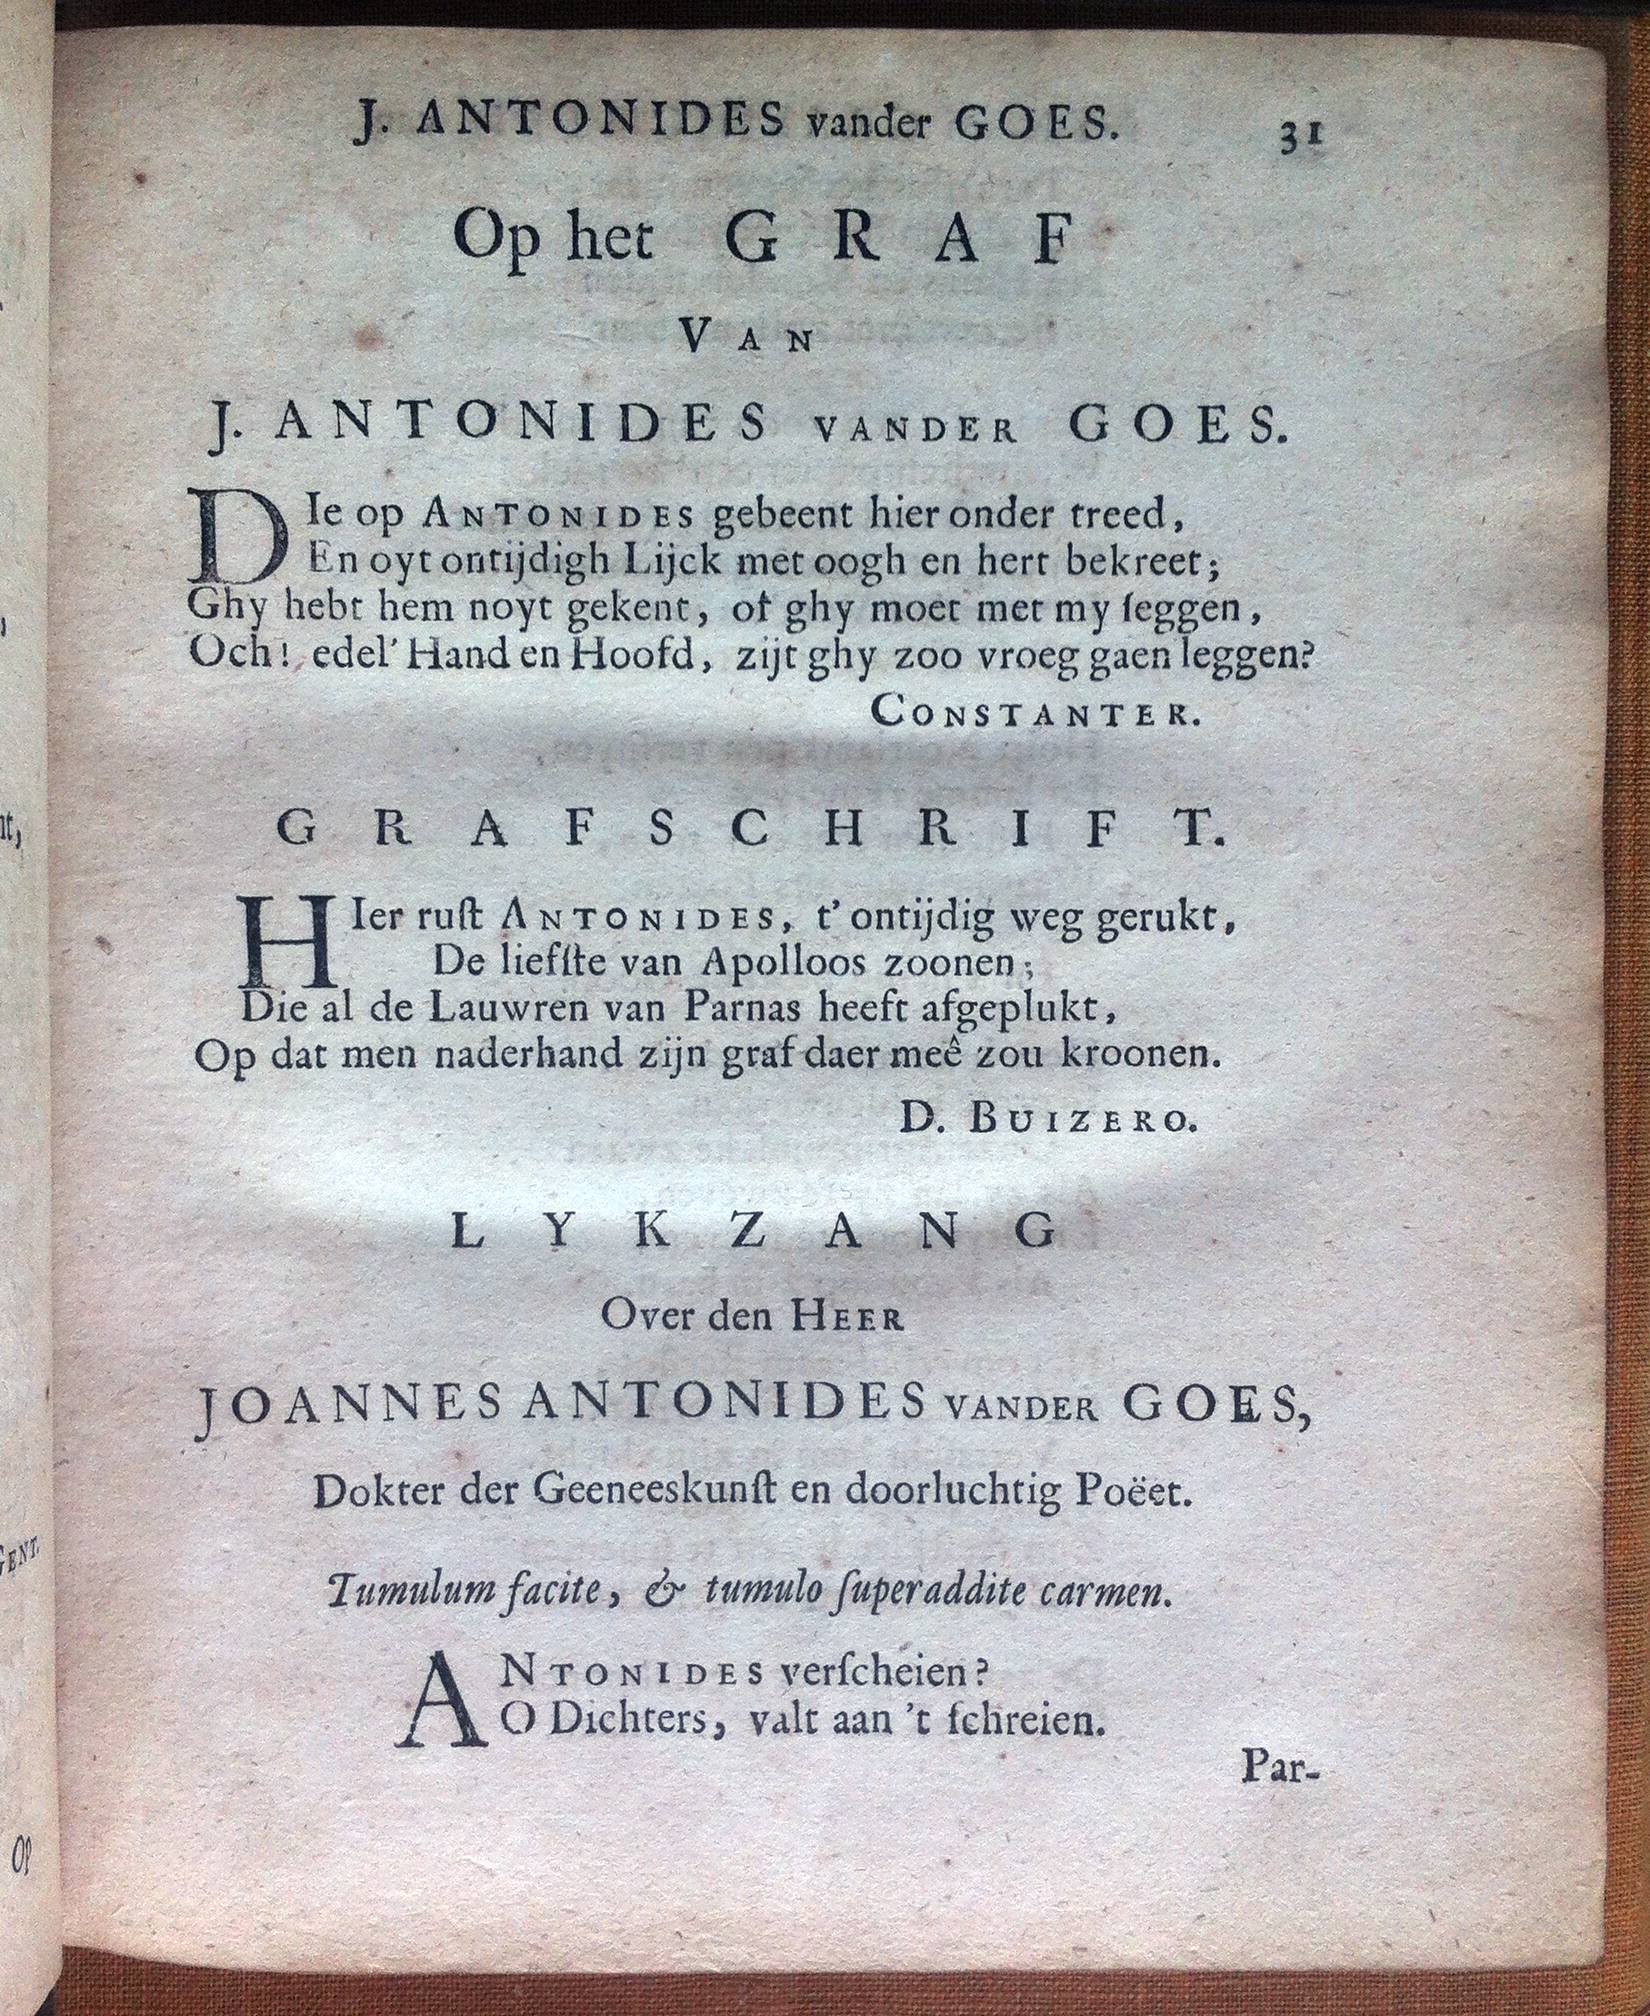 J. ANTONIDES vander GOES. 31
Op het GRAF
VAN
J. ANTONIDES VANDER GOES.
DIe op ANTONIDES gebeent hier onder treed,
En oyt ontijdigh Lijck met oogh en hert bekreet;
Ghy hebt hem noyt gekent, of ghy moet met my ſeggen,
Och! edel' Hand en Hoofd, zijt ghy zoo vroeg gaen leggen?
CONSTANTER.
GRAFSCHRIFT.
HIer ruſt ANTONIDES, t' ontijdig weg gerukt,
De liefſte van Apolloos zoonen;
Die al de Lauwren van Parnas heeft afgeplukt,
Op dat men naderhand zijn graf daer meê zou kroonen.
D. BUIZERO.
LYKZANG
Over den HEER
JOANNES ANTONIDES VANDER GOES,
Dokter der Geeneeskunſt en doorluchtig Poëet.
Tumulum facite, & tumulo ſuperaddite carmen.
ANTONIDES verſcheien?
O Dichters, valt aan 't ſchreien.
Par-
nt,
GENT.
Op